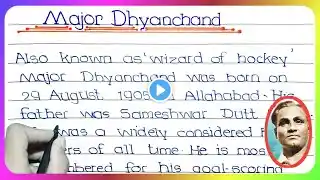 Major Dhyanchand
Also known as 'wizard of hockey'
Major Dhyanchand was born on
29 August 1905 Allahabad. His
father was Sameshwar Dutt
was a widely considered
of all time He is most
for his goal-scoring